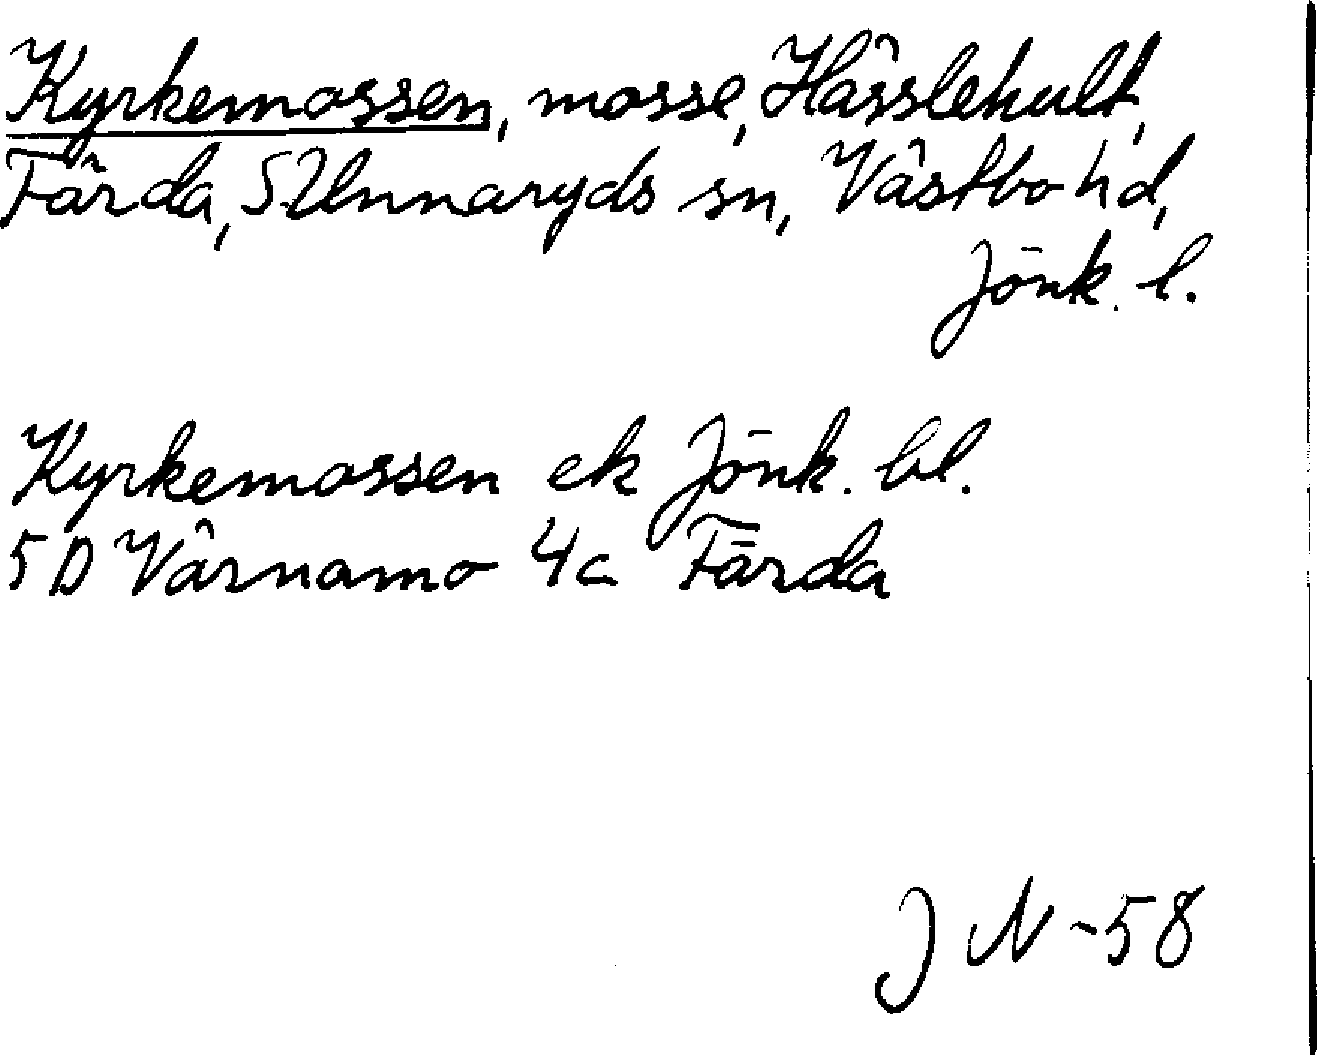 Kyrkemossen, mosse, Hässlehult,
Färda, S Unnaryds sn, Västbo hd,
Jönk. l.
Kyrkemossen ek Jönk. bl.
5 D Värnamo 4c Färda
J N -58